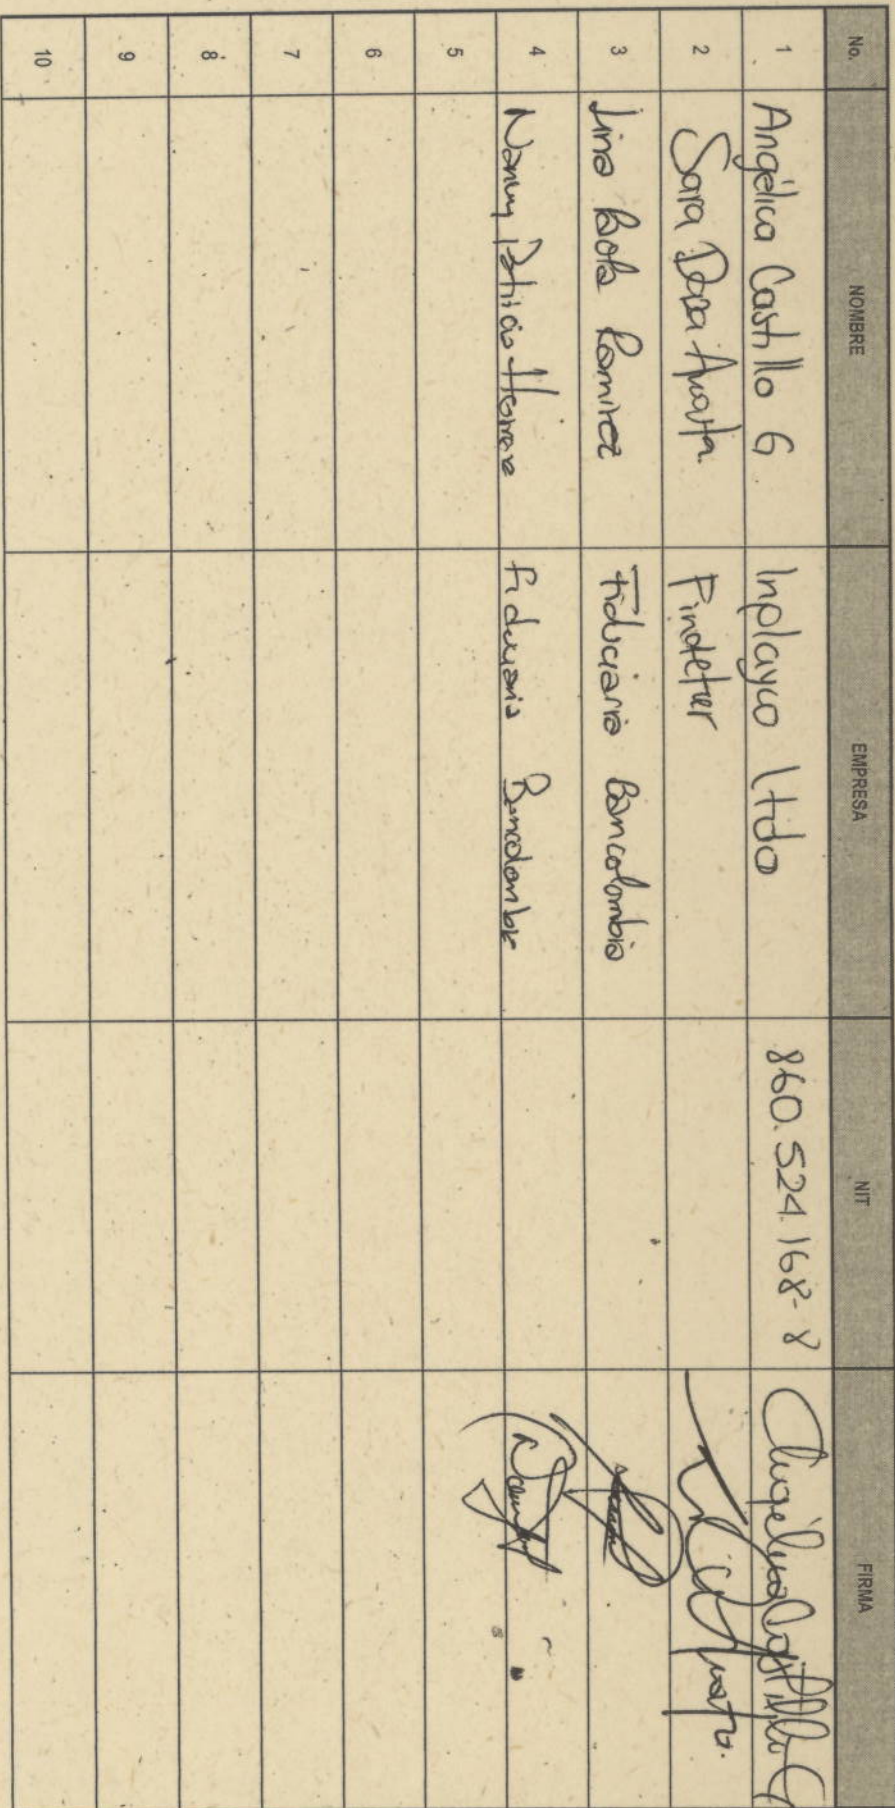 No. NOMBRE EMPRESA NIT FIRMA
1 Angélica Castillo G Inplayco ltda 860.524.168-8 Angélica Castillo G
2 Sara Acosta. Findeter Acosta.
3 Lina Ramirez Fiduciaria Bancolombia
4 Nancy Patricia Herrera Fiduciaria Bancolombia Nancy
5
6
7
8
9
10